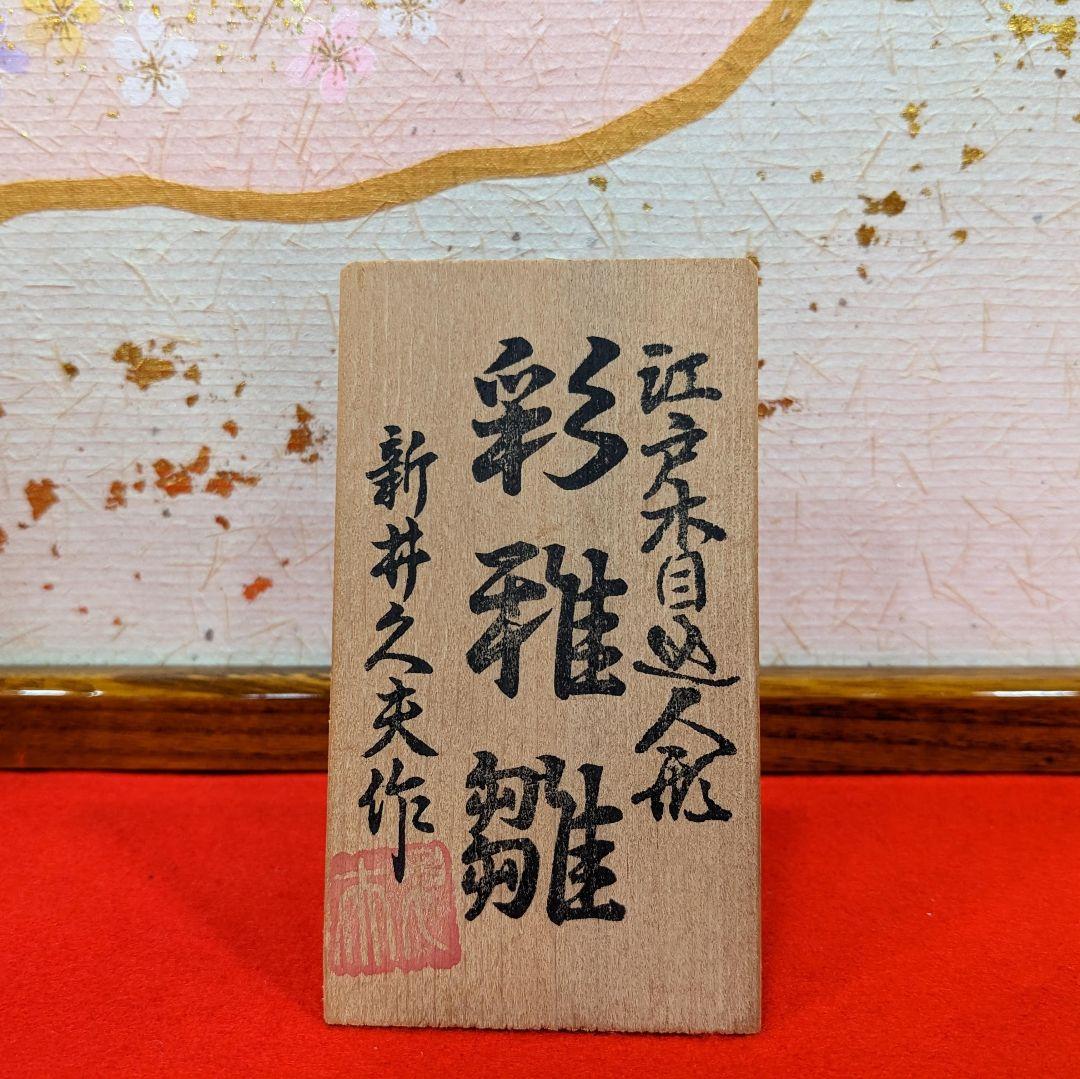 江戸木目込人形
彩雅雛
新井久夫作